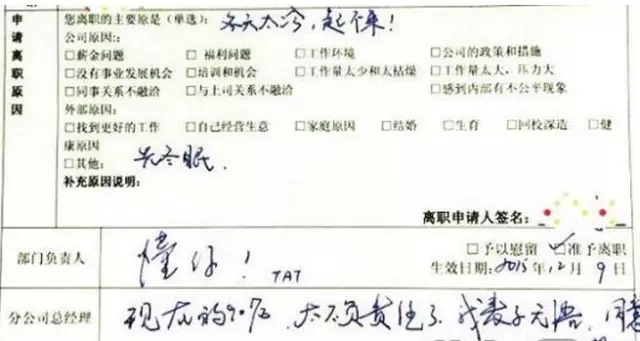 申请离职原因
您离职的主要原是(单选): 冬天太冷,起不来!
公司原因::
□薪金问题 □福利问题 □工作环境 □公司的政策和措施
□没有事业发展机会 □培训和机会 □工作量太少和太枯燥 □工作量太大,压力大
□同事关系不融洽 □与上司关系不融洽 □感到内部有不公平现象
外部原因:
□找到更好的工作 □自己经营生意 □家庭原因 □结婚 □生育 □回校深造 □健
康原因
□其他: 去冬眠.
补充原因说明:
离职申请人签名:
部门负责人 懂你! TAT □予以慰留 ☑准予离职
生效日期: 2015年12月9日
分公司总经理 现在的90后,太不负责任了,我表示无语,同意